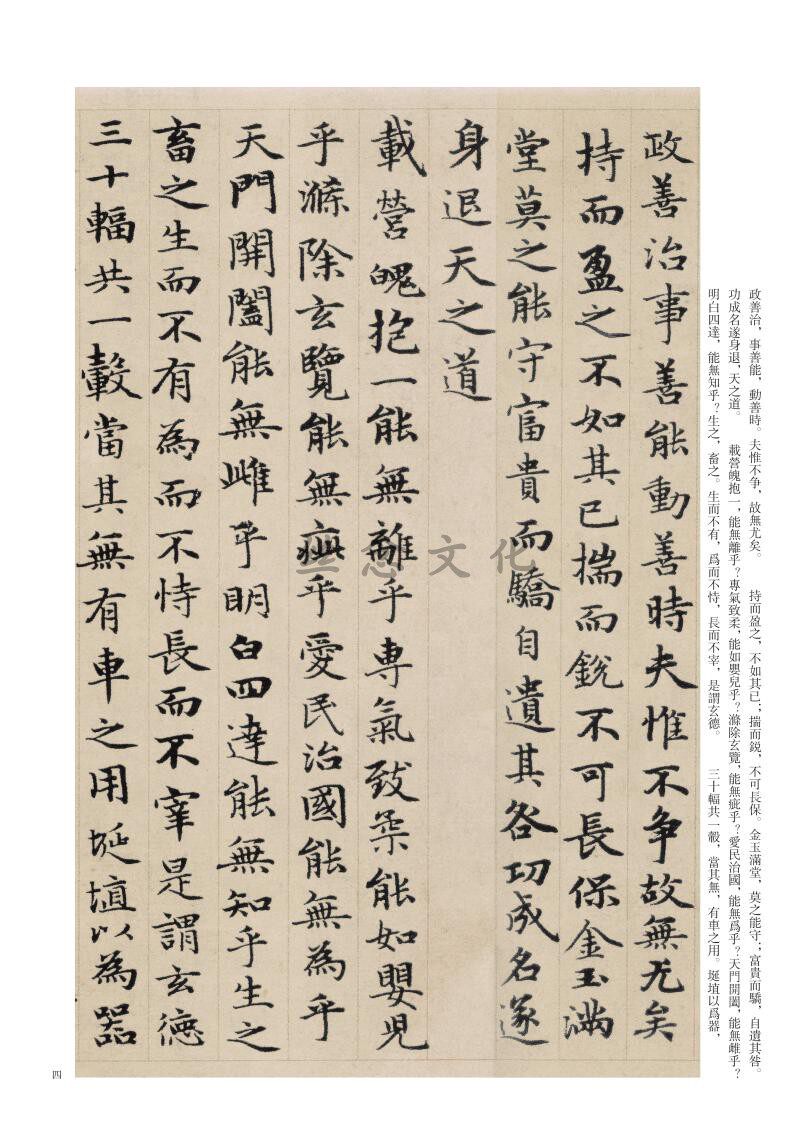 政善治，事善能，動善時。夫惟不争，故無尤矣。　持而盈之，不如其已；揣而鋭，不可長保。金玉滿堂，莫之能守；富貴而驕，自遺其咎。
功成名遂身退，天之道。　載營魄抱一，能無離乎？專氣致柔，能如嬰兒乎？滌除玄覽，能無疵乎？愛民治國，能無爲乎？天門開闔，能無雌乎？
明白四達，能無知乎？生之，畜之。生而不有，爲而不恃，長而不宰，是謂玄德。　三十輻共一轂，當其無，有車之用。埏埴以爲器，
政善治事善能動善時夫惟不争故無尤矣
持而盈之不如其已揣而銳不可長保金玉滿
堂莫之能守富貴而驕自遺其咎功成名遂
身退天之道
載營魄抱一能無離乎専氣致柔能如嬰兒
乎滌除玄覽能無疵乎愛民治國能無為乎
天門開闔能無雌乎明白四達能無知乎生之
畜之生而不有為而不恃長而不宰是謂玄德
三十輻共一轂當其無有車之用埏埴以為器
文化
四